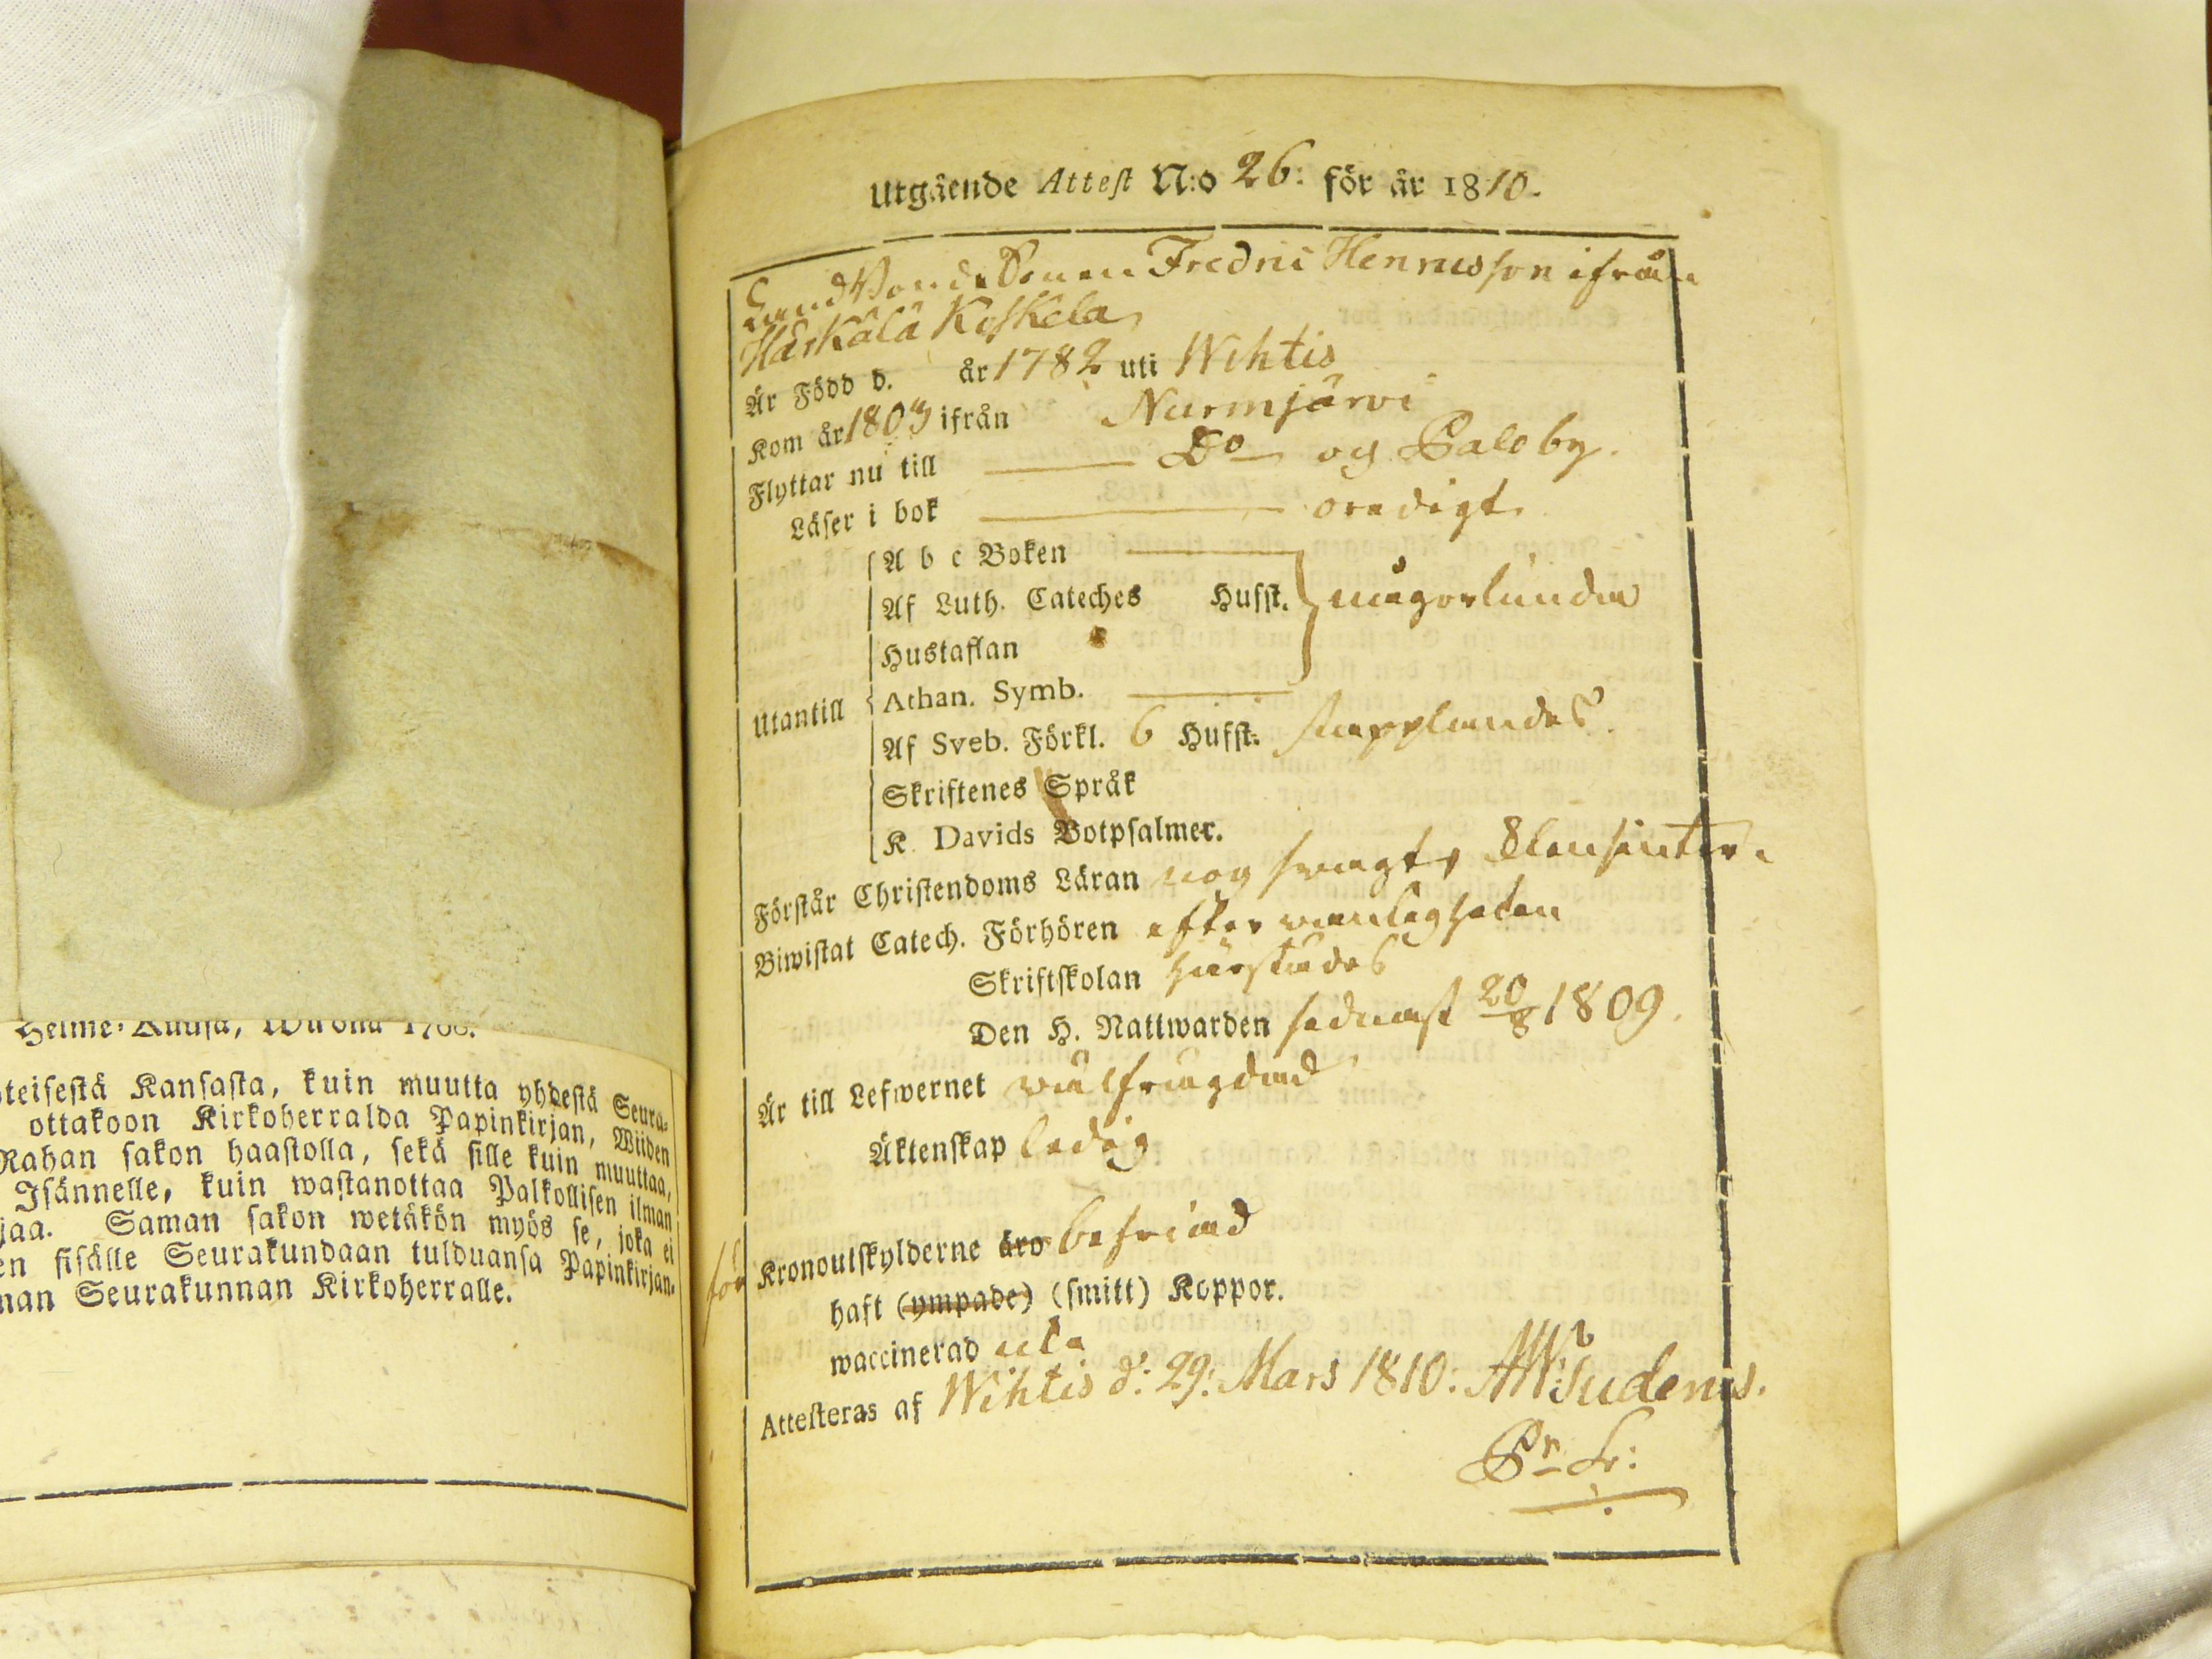 Helme-Kuusa, Wuonna 1788.
teisestä Kansasta, kuin muutta yhdestä Seura-
ottakoon Kirkoherralda Papinkirjan, Wiiden
Rahan sakon haastolla, sekä sille kuin muuttaa,
Isännelle, kuin wastanottaa Palkollisen ilman
jaa. Saman sakon wetäkön myös se, joka ei
en sisälle Seurakundaan tulduansa Papinkirjan-
nan Seurakunnan Kirkoherralle.
Utgående Attest N:o 26: för år 1810.
Bonde Sonen Fredric Henricsson ifrån
Härkälä Koskela
Är Född d. år 1782 uti Wihtis
Kom år 1803 ifrån Nurmjärwi
Flyttar nu till Do och Palo by.
Läser i bok oredigt.
A b c Boken
Af Luth. Cateches Hufst. någorlunda
Hustaflan
Utantill Athan. Symb.
Af Sveb. Förkl. 6 Hufst. stapplandes.
Skriftenes Språk
K Davids Botpsalmer.
Förstår Christendoms Läran nog swagt,
Biwistat Catech. Förhören efter wanligheten
Skriftskolan härstädes
Den H. Nattwarden sednast 20/8 1809.
Är till Lefwernet wälfrägdad
Äktenskap ledig
för Kronoutskylderne äro befriad
haft (ympade) (smitt) Koppor.
waccinerad icke
Attesteras af Wihtis d: 29: Mars 1810: